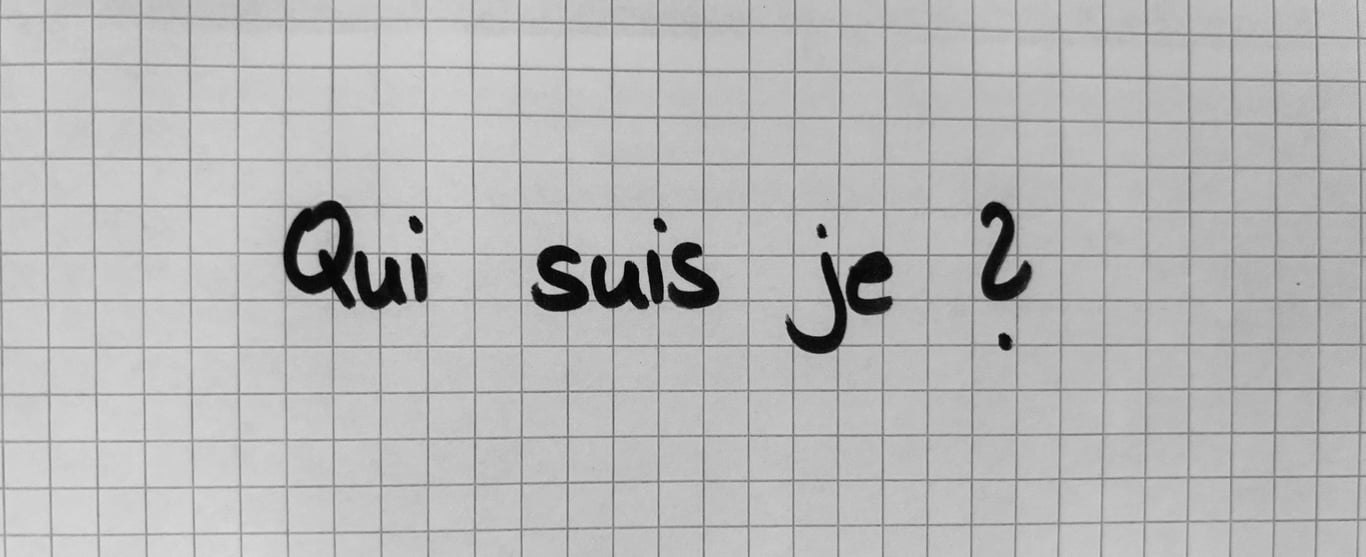 Qui suis je ?